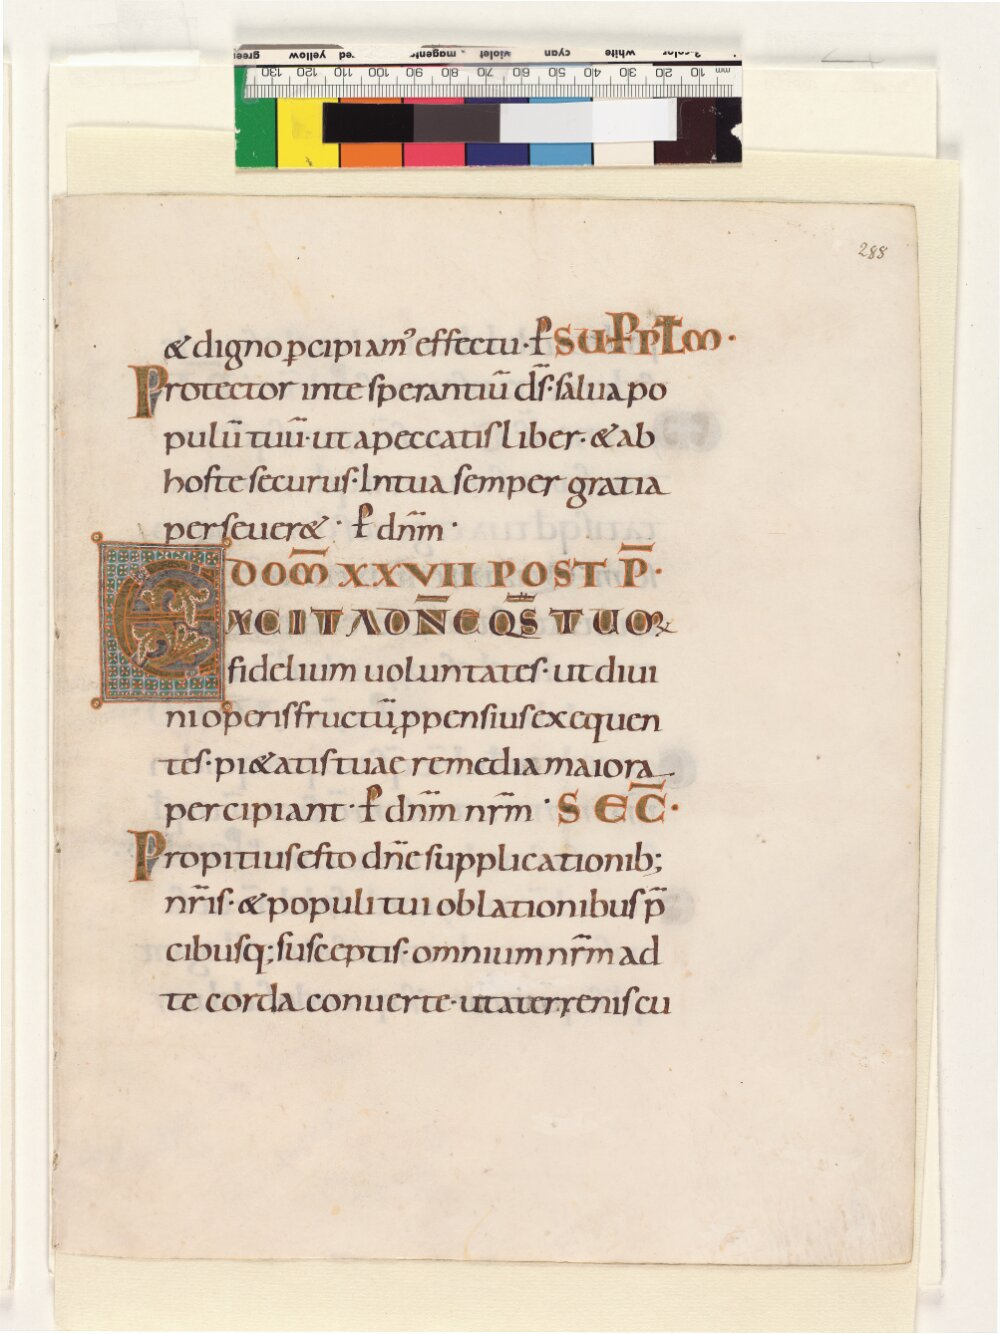 green yellow red magenta violet cyan white 3-color
130 120 110 100 90 80 70 60 50 40 30 20 10 mm
288
& digno p̱cipiam᾽ effectu· ꝑ SUP PPLM·
Protector inte sperantiū d̄s· salua po
pulū tuū· ut a peccatis liber· & ab
hoste securus· In tua semper gratia
perseuer&· ꝑ dn̄m·
DOM̄ XXVII POST P̄·
EXCITA DN̄E Q̄S TUOꝝ
fidelium uoluntates· ut diui
ni operis fructū ꝓpensius exequen
tes· pi&atis tuae remedia maiora
percipiant· ꝑ dn̄m nr̄m· SEC̄·
Propitius esto dn̄e supplicationib;
nr̄is· & populi tui oblationibus p̄
cibusq; susceptis· omnium nr̄m ad
te corda conuerte· ut a terrenis cu